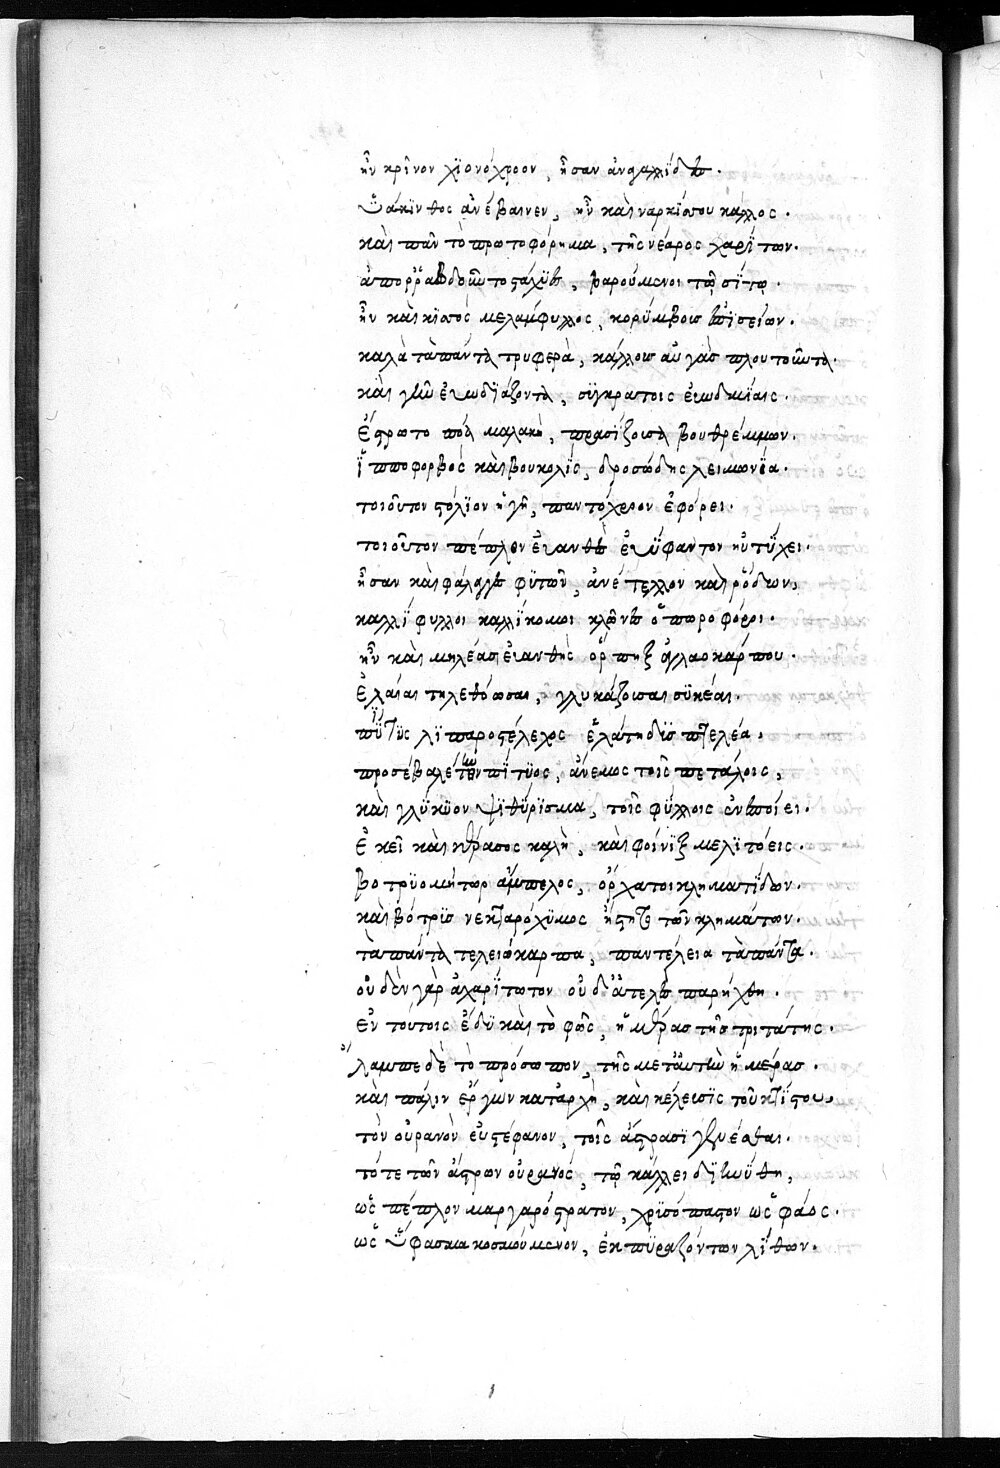 ἦν κρῖνον χϊονόχροον, ἦσαν ἀναγαλλίδες.
Ὑάκϊνθος ἀνέβαινεν, ἦν καὶ ναρκίσσου κάλλος.
καὶ πᾶν τὸ πρωτοφόρημα, τῆς νέαρος χαρΐτων.
ἀπορραβδοῦντο στάχϋες, βαρούμενοι τῶ σίτω.
ἦν καὶ κισσὸς μελάμφυλλος, κορύμβοις ἐπισείων.
καλὰ τὰ πάντα τρυφερὰ, κάλλους αὐγὰς πλουτοῦντα.
καὶ γῆν εὐωδϊάζοντα, συγκράτοις εὐωδμίαις.
ἔστρωτο πόα μαλακὴ, πρασίζουσα βουθρέμμων.
ἱπποφορβὸς καὶ βουκολὶς, δροσώδης λειμωνΐα.
τοιοῦτον στόλϊον ἡ γῆ, παντόχροον ἐφόρει.
τοιοῦτον πέπλον εὐανθὲς εὐΰφαντον ηὐτύχει.
ἦσαν καὶ φάλαγγες φϋτῶν, ἀνέτελλον καὶ ῥόδων,
καλλΐφυλλοι καλλΐκομοι κλῶνες ὀπωροφόροι.
ἦν καὶ μηλέας εὐανθὴς ὄρπηξ ἀγλαοκάρπου.
ἐλαίαι τηλεθόωσαι, γλυκάζουσαι συκέαι.
πίτϋς λϊπαροστέλεχος ἐλάτη δὶς πτελέα.
προσέβαλε τῶν πίτϋος, ἄνεμος τοῖς πετάλοις,
καὶ γλϋκϋον ψϊθύρϊσμα, τοῖς φύλλοις ἐνεποίει.
ἐκεῖ καὶ κέρασος καλὴ, καὶ φοίνϊξ μελϊτόεις.
βοτρϋομήτωρ ἄμπελος, ὄρχατοι κληματΐδων.
καὶ βότρϋς νεκταρόχϋμος ἤρτητο τῶν κλημάτων.
τὰ πάντα τελειόκαρπα, παντέλεια τὰ πάντα.
οὐδὲν γὰρ ἀχαρΐτωτον οὐδ' ἀτελὲς παρήχθη.
ἐν τούτοις ἔδϋ καὶ τὸ φῶς, ἡμέρας τῆς τρίτάτης.
ἔλαμπε δὲ τὸ πρόσωπον, τῆς μετ' αὐτὴν ἡμέρας.
καὶ πάλιν ἔργων καταρχὴ, καὶ κέλευσϊς τοῦ κτΐστου,
τὸν οὐρανὸν εὐστέφανον, τοῖς ἄστρασϊ γενέσθαι.
τότε τῶν ἄστρων οὐρανὸς, τῶ κάλλει διηνύθη,
ὡς πέπλον μαργαρόστρατον, χρϋσόπαστον ὡς φάος.
ὡς ὕφασμα κοσμούμενον, ἐκ πϋραζόντων λίθων.